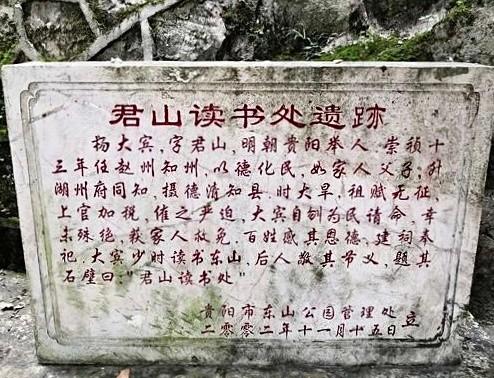 君山读书处遗跡
杨大宾,字君山,明朝贵阳举人.崇祯十
三年任赵州知州,以德化民,如家人父子;升
湖州府同知,摄德清知县.时大旱,祖赋无征,
上官加税,催之严迫,大宾自刎为民请命,幸
未殊绝,获家人救免.百姓感其恩德,建祠奉
祀.大宾少时读书东山,后人敬其节义,题其
石壁曰:"君山读书处"
贵阳市东山公园管理处
二零零二年十一月十五日立